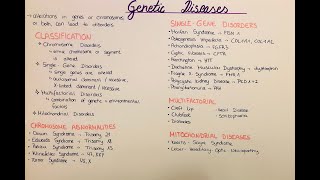 Genetic Diseases
- alterations in genes or chromosomes or both can lead to disorders
CLASSIFICATION
Chromosome Disorders
- entire chromosome or segment is altered
Single-Gene Disorders
- single genes are altered
- autosomal dominant / recessive
- X-linked dominant / recessive
Multifactorial Disorders
- combination of genetic + environmental factors
Mitochondrial Disorders
CHROMOSOME ABNORMALITIES
- Down Syndrome - Trisomy 21
- Edwards Syndrome - Trisomy 18
- Patau Syndrome - Trisomy 13
- Klinefelter Syndrome - 47, XXY
- Turner Syndrome - 45, X
SINGLE-GENE DISORDERS
- Marfan Syndrome - FBN1
- Osteogenesis Imperfecta - COL1A1, COL1A2
- Achondroplasia - FGFR3
- Cystic Fibrosis - CFTR
- Huntington's - HTT
- Duchenne Muscular Dystrophy - dystrophin
- Fragile X Syndrome - FMR1
- Polycystic Kidney Disease - PKD1+2
- Phenylketonuria - PAH
MULTIFACTORIAL
- Cleft Lip
- Clubfoot
- Heart Disease
- Schizophrenia
- Diabetes
MITOCHONDRIAL DISEASES
- Kearns - Sayre Syndrome
- Leber Hereditary Optic Neuropathy